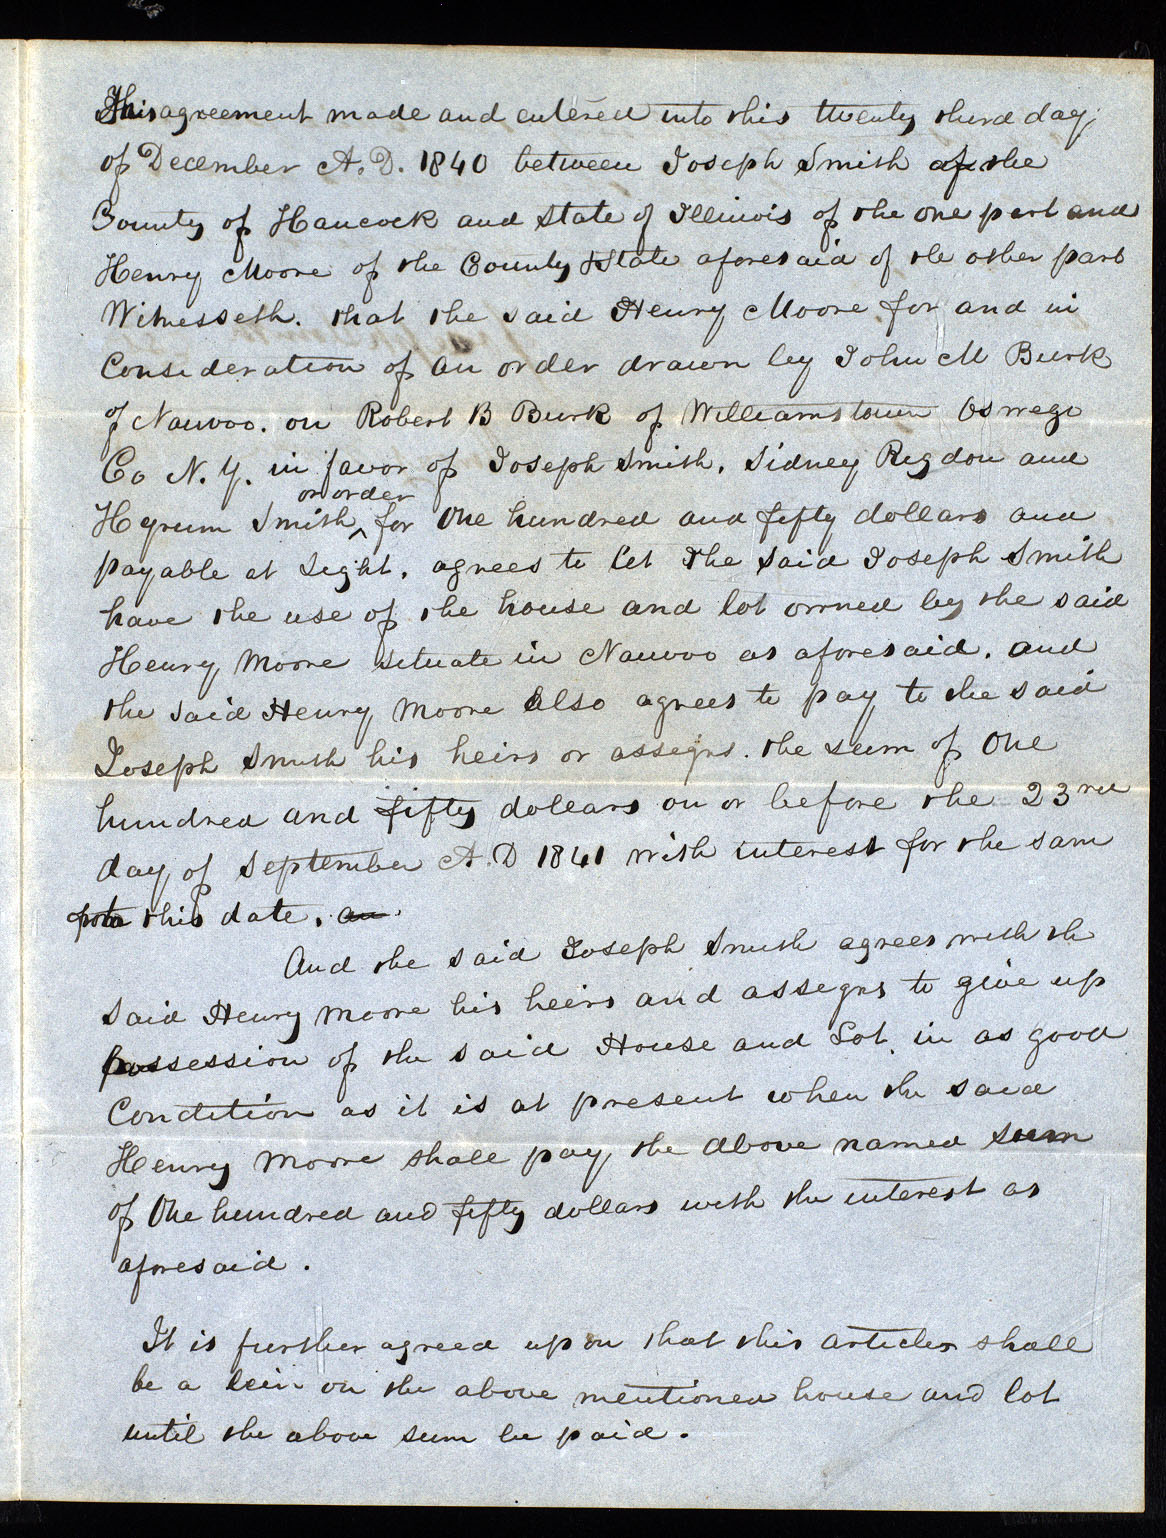 This agreement made and entered into this twenty third day
of December A.D. 1840 between Joseph Smith of the
County of Hancock and State of Illinois of the one part and
Henry Moore of the County & State aforesaid of the other part
Witnesseth. that the said Henry Moore for and in
Consideration of an order drawn by John M Burk
of Nauvoo. on Robert B Burk of Williamstown Oswego
Co N. Y. in favor of Joseph Smith, Sidney Rigdon and
or order
Hyrum Smith ^ for One hundred and fifty dollars and
payable at Sight, agrees to let the said Joseph Smith
have the use of the house and lot owned by the said
Henry Moore situate in Nauvoo as aforesaid. and
the said Henry Moore also agrees to pay to the said
Joseph Smith his heirs or assigns. the sum of One
hundred and fifty dollars on or before the 23rd
day of September A.D 1841 with interest for the sam
this date. an
And the said Joseph Smith agrees with the
said Henry Moore his heirs and assigns to give up
possession of the said House and Lot in as good
Condition as it is at present when the said
Henry Moore shall pay the above named sum
of One hundred and fifty dollars with the interest as
aforesaid.
It is further agreed upon that this articles shall
be a lein on the above mentioned house and lot
until the above sum be paid.